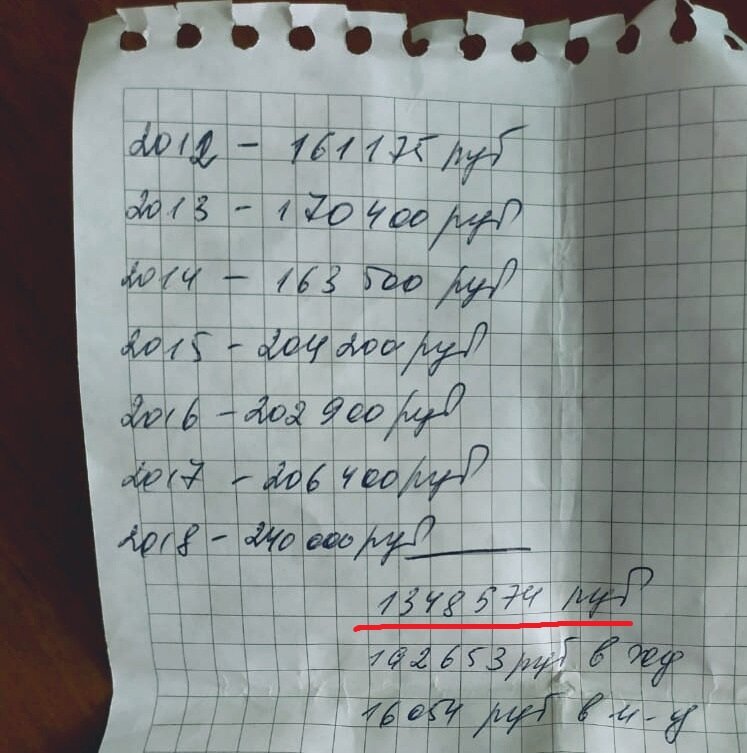 2012 - 161175 руб
2013 - 170400 руб
2014 - 163 500 руб
2015 - 204 200 руб
2016 - 202 900 руб
2017 - 206 400 руб
2018 - 240 000 руб
1348 574 руб
192653 руб в год
16054 руб в м-ц